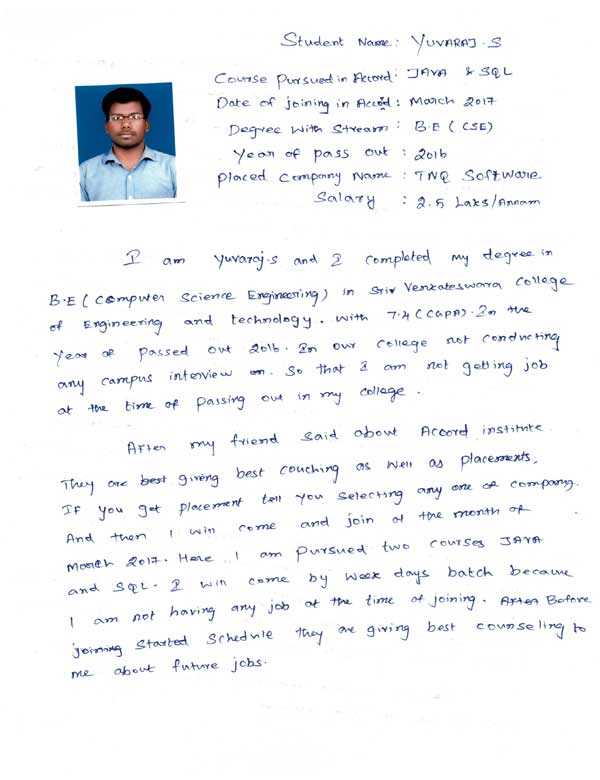 Student Name: YUVARAJ.S
Course Pursued in Accord: JAVA & SQL
Date of joining in Accord : March 2017
Degree With Stream : B.E ( CSE)
Year of pass out : 2016
placed Company Name : TNQ Software
Salary : 2.5 Laks/Annam
I am yuvaraj.s and I completed my degree in
B.E ( Computer Science Engineering) in Sriv Venkateswara college
of Engineering and technology. with 7.4 (CGPA). In the
Year of Passed out 2016. In our college not conducting
any campus interview on. So that I am not getting job
at the time of passing out in my college.
After my friend said about Accord institute.
They are best giving best couching as well as placements.
If you get placement tell you selecting any one of company.
And then I will come and join at the month of
March 2017. Here I am pursued two courses JAVA
and SQL. I will come by week days batch because
I am not having any job at the time of joining. After Before
joining Started Schedule they are giving best counseling to
me about future jobs.